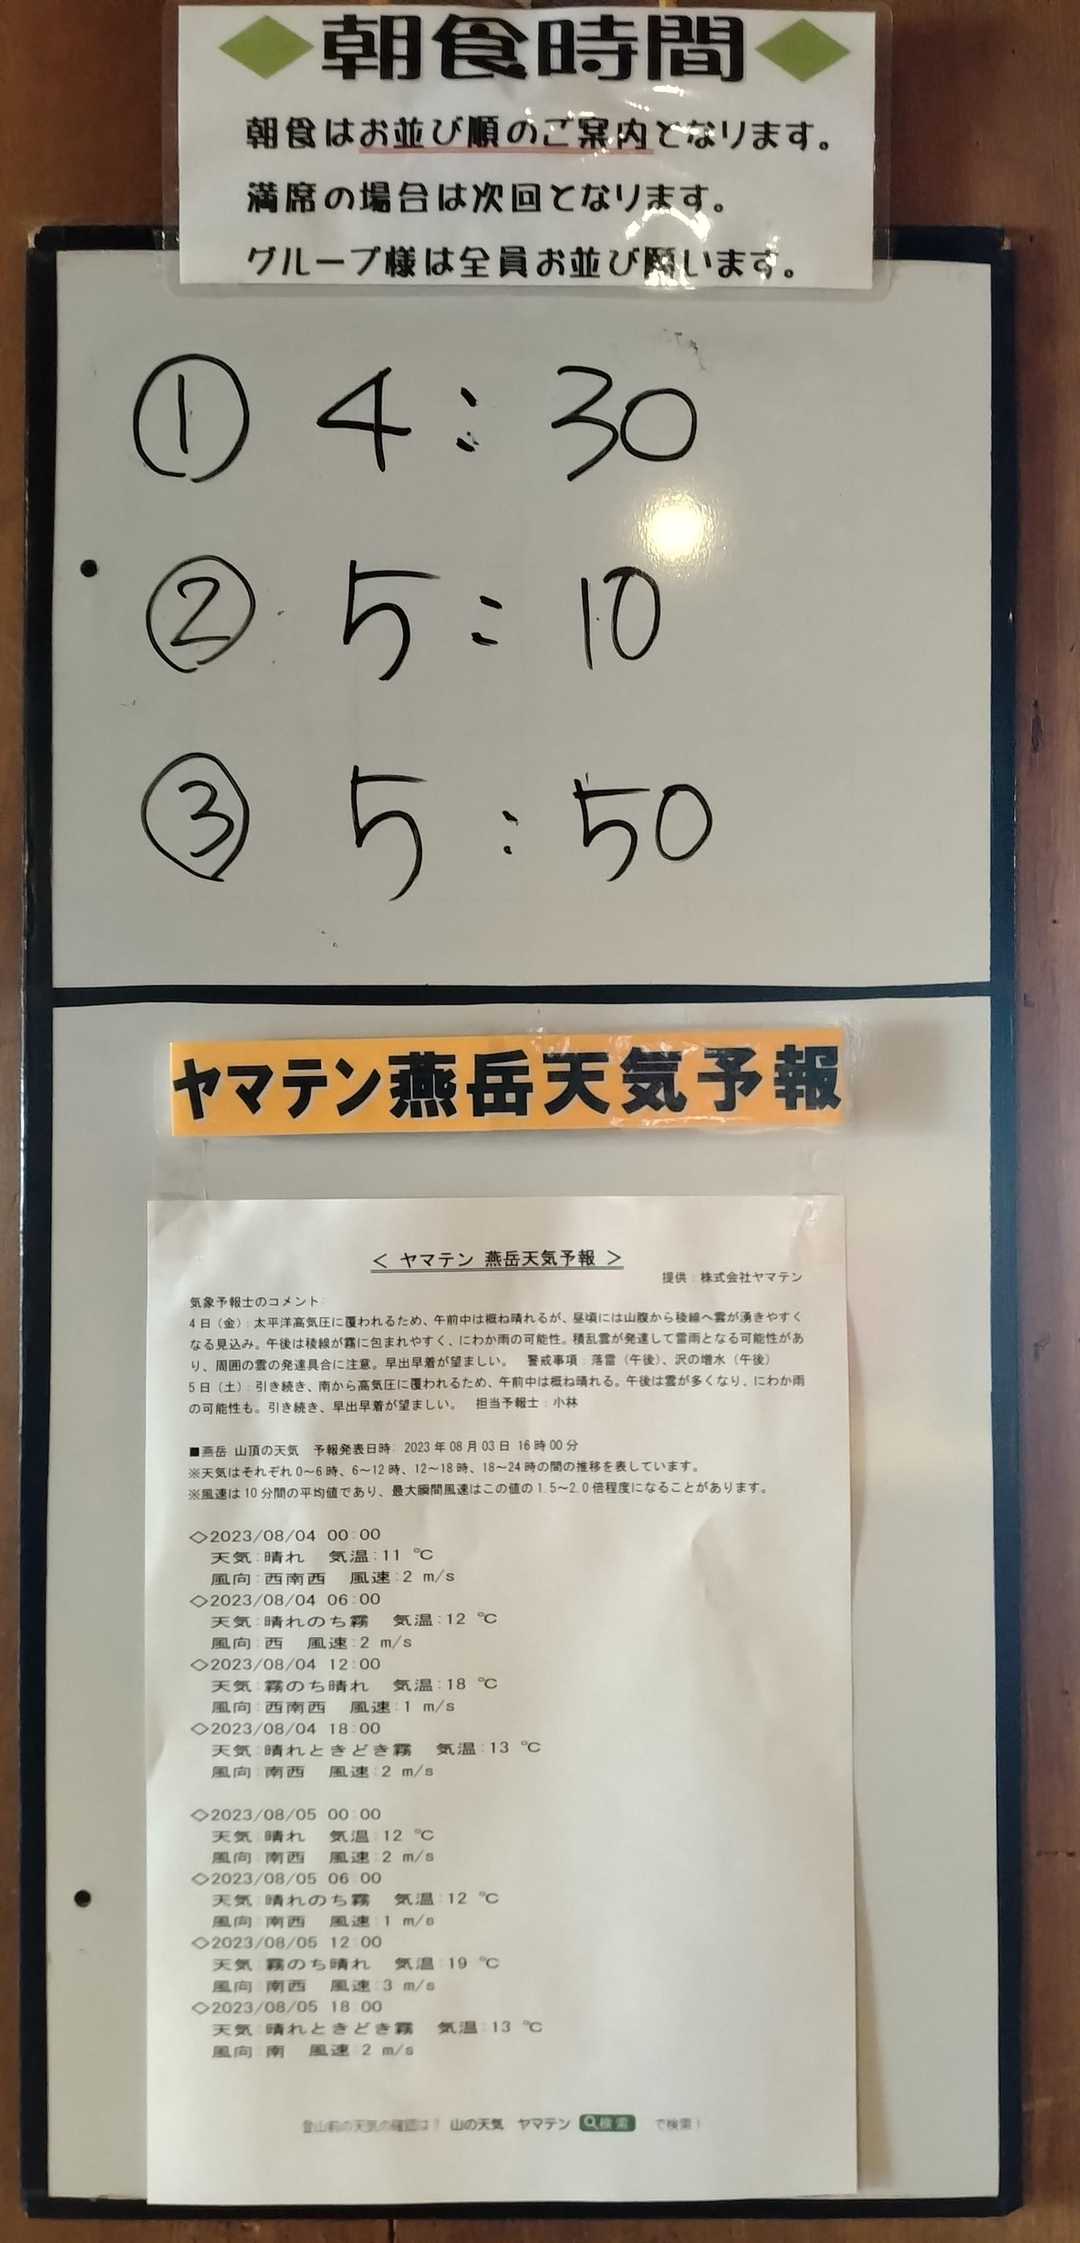 ◆朝食時間◆
朝食はお並び順のご案内となります。
満席の場合は次回となります。
グループ様は全員お並び願います。
① 4:30
② 5:10
③ 5:50
ヤマテン燕岳天気予報
＜ ヤマテン 燕岳天気予報 ＞
提供：株式会社ヤマテン
気象予報士のコメント：
4日（金）：太平洋高気圧に覆われるため、午前中は概ね晴れるが、昼頃には山腹から稜線へ雲が湧きやすく
なる見込み。午後は稜線が霧に包まれやすく、にわか雨の可能性。積乱雲が発達して雷雨となる可能性があ
り、周囲の雲の発達具合に注意。早出早着が望ましい。 警戒事項：落雷（午後）、沢の増水（午後）
5日（土）：引き続き、南から高気圧に覆われるため、午前中は概ね晴れる。午後は雲が多くなり、にわか雨
の可能性も。引き続き、早出早着が望ましい。 担当予報士：小林
■燕岳 山頂の天気 予報発表日時: 2023年08月03日 16時00分
※天気はそれぞれ0～6時、6～12時、12～18時、18～24時の間の推移を表しています。
※風速は10分間の平均値であり、最大瞬間風速はこの値の1.5～2.0倍程度になることがあります。
◇2023/08/04 00:00
天気:晴れ 気温:11 ℃
風向:西南西 風速:2 m/s
◇2023/08/04 06:00
天気:晴れのち霧 気温:12 ℃
風向:西 風速:2 m/s
◇2023/08/04 12:00
天気:霧のち晴れ 気温:18 ℃
風向:西南西 風速:1 m/s
◇2023/08/04 18:00
天気:晴れときどき霧 気温:13 ℃
風向:南西 風速:2 m/s
◇2023/08/05 00:00
天気:晴れ 気温:12 ℃
風向:南西 風速:2 m/s
◇2023/08/05 06:00
天気:晴れのち霧 気温:12 ℃
風向:南西 風速:1 m/s
◇2023/08/05 12:00
天気:霧のち晴れ 気温:19 ℃
風向:南西 風速:3 m/s
◇2023/08/05 18:00
天気:晴れときどき霧 気温:13 ℃
風向:南 風速:2 m/s
登山前の天気の確認は？ 山の天気 ヤマテン 検索 で検索！